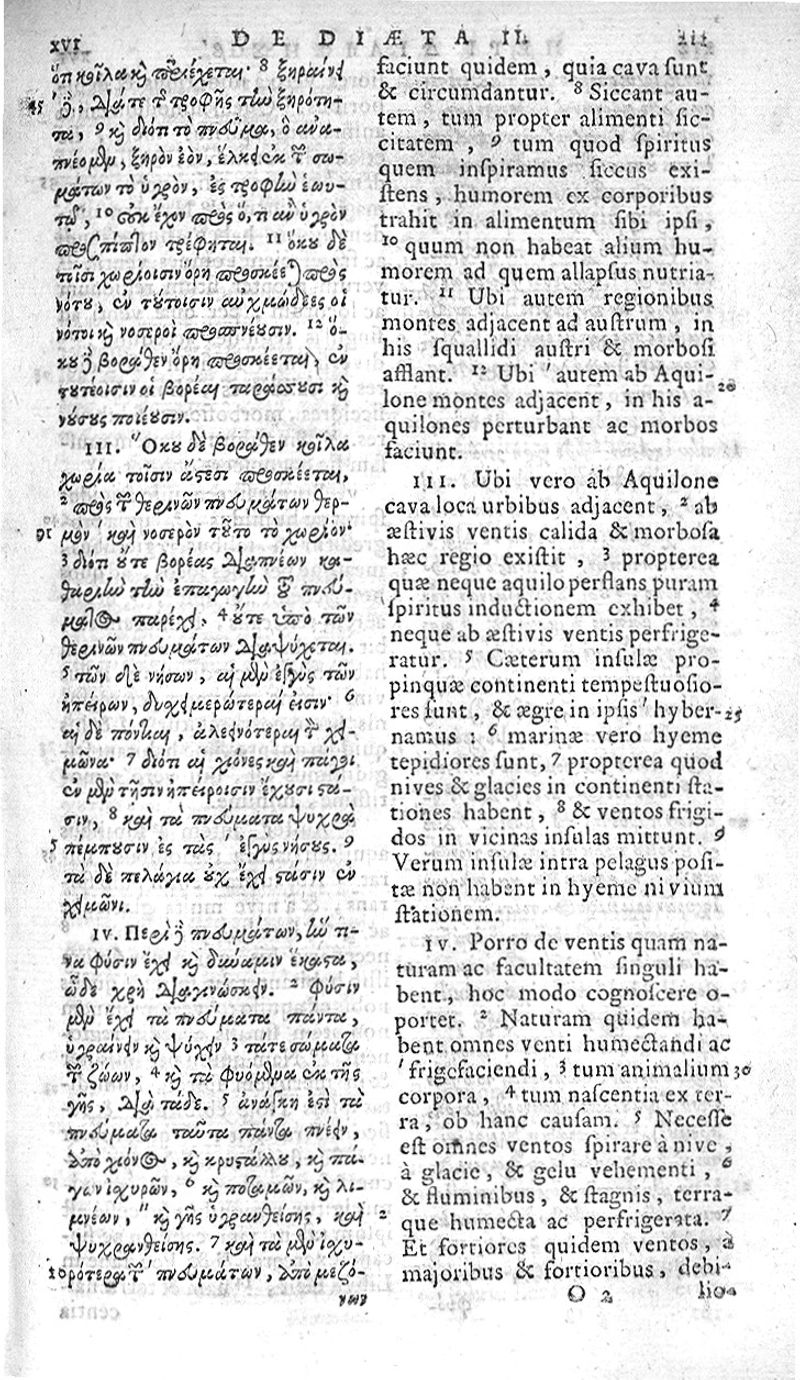 XVI DE DIÆTA II. 111
ὅτι κοῖλα κ̀ περιέχεται· 8 ξηραίνει
45 δὲ, διά τε τ̃ τροφῆς τὴν ξηρότη-
τα, 9 κ̀ διότι τὸ πνεῦμα, ὃ ἀνα-
πνέομεν, ξηρὸν ἐὸν, ἕλκει ἐκ τ̃ σω-
μάτων τὸ ὑγρὸν, ἐς τροφὴν ἑωυ-
τῷ, 10 οὐκ ἔχον πρὸς ὅ,τι ἂν ὑγρὸν
προσπίπτον τρέφηται. 11 ὅκου δὲ
τοῖσι χωρίοισιν ὄρη προσκέεται πρὸς
νότου, ἐν τούτοισιν αὐχμώδεες οἱ
νότοι κ̀ νοσεροὶ προσπνέουσιν. 12 ὅ-
κου δὲ βορᾶθεν ὄρη προσκέεται, ἐν
τουτέοισιν οἱ βορέαι ταράσσουσι κ̀
νούσους ποιέουσιν.
III. Ὅκου δὲ βορᾶθεν κοῖλα
χωρία τοῖσιν ἄστεσι προσκέεται,
2 πρὸς τ̃ θερινῶν πνευμάτων θερ-
91 μὸν καὶ νοσερὸν τοῦτο τὸ χωρίον·
3 διότι οὔτε βορέας διαπνέων κα-
θαρὴν τὴν ἐπαγωγὴν τοῦ πνεύ-
ματος παρέχει, 4 οὔτε ὑπὸ τῶν
θερινῶν πνευμάτων διαψύχεται.
5 τῶν δὲ νήσων, αἱ μὲν ἐγγὺς τῶν
ἠπείρων, δυσχειμερώτεραί εἰσιν· 6
αἱ δὲ πόντιαι, ἀλεεινότεραι τ̃ χει-
μῶνα· 7 διότι αἱ χιόνες καὶ πάγοι
ἐν μὲν τῇσιν ἠπείροισιν ἔχουσι στά-
σιν, 8 καὶ τὰ πνεύματα ψυχρὰ
5 πέμπουσιν ἐς τὰς ἐγγὺς νήσους. 9
τὰ δὲ πελάγια οὐχ ἔχει στάσιν ἐν
χειμῶνι.
IV. Περὶ δὲ πνευμάτων, ἥν τι-
να φύσιν ἔχει κ̀ δύναμιν ἕκαστα,
ὧδε χρὴ διαγινώσκειν. 2 Φύσιν
μὲν ἔχει τὰ πνεύματα πάντα,
ὑγραίνειν κ̀ ψύχειν 3 τά τε σώματα
τ̃ ζώων, 4 κ̀ τὰ φυόμενα ἐκ τῆς
γῆς, διὰ τάδε. 5 ἀνάγκη ἐστὶ τὰ
πνεύματα ταῦτα πάντα πνέειν,
ἀπὸ χιόνος, κ̀ κρυστάλλου, κ̀ πά-
γων ἰσχυρῶν, 6 κ̀ ποταμῶν, κ̀ λι-
μνέων, " κ̀ γῆς ὑγρανθείσης, καὶ
ψυχρανθείσης. 7 καὶ τὰ μὲν ἰσχυ-
10 ρότερα τ̃ πνευμάτων, ἀπὸ μεζό-
νων
faciunt quidem, quia cava sunt
& circumdantur. 8 Siccant au-
tem, tum propter alimenti sic-
citatem, 9 tum quod spiritus
quem inspiramus siccus exi-
stens, humorem ex corporibus
trahit in alimentum sibi ipsi,
10 quum non habeat alium hu-
morem ad quem allapsus nutria-
tur. 11 Ubi autem regionibus
montes adjacent ad austrum, in
his squallidi austri & morbosi
afflant. 12 Ubi ' autem ab Aqui- 20
lone montes adjacent, in his a-
quilones perturbant ac morbos
faciunt.
III. Ubi vero ab Aquilone
cava loca urbibus adjacent, 2 ab
æstivis ventis calida & morbosa
hæc regio existit, 3 propterea
quæ neque aquilo perflans puram
spiritus inductionem exhibet, 4
neque ab æstivis ventis perfrige-
ratur. 5 Cæterum insulæ pro-
pinquæ continenti tempestuosio-
res sunt, & ægre in ipsis ' hyber- 25
namus: 6 marinæ vero hyeme
tepidiores sunt, 7 propterea quod
nives & glacies in continenti sta-
tiones habent, 8 & ventos frigi-
dos in vicinas insulas mittunt. 9
Verum insulæ intra pelagus posi-
tæ non habent in hyeme nivium
stationem.
IV. Porro de ventis quam na-
turam ac facultatem singuli ha-
bent, hoc modo cognoscere o-
portet. 2 Naturam quidem ha-
bent omnes venti humectandi ac
' frigefaciendi, 3 tum animalium 30
corpora, 4 tum nascentia ex ter-
ra, ob hanc causam. 5 Necesse
est omnes ventos spirare à nive,
à glacie, & gelu vehementi, 6
& fluminibus, & stagnis, terra-
2 que humecta ac perfrigerata. 7
Et fortiores quidem ventos, à
majoribus & fortioribus, debi-
O 2 lio-